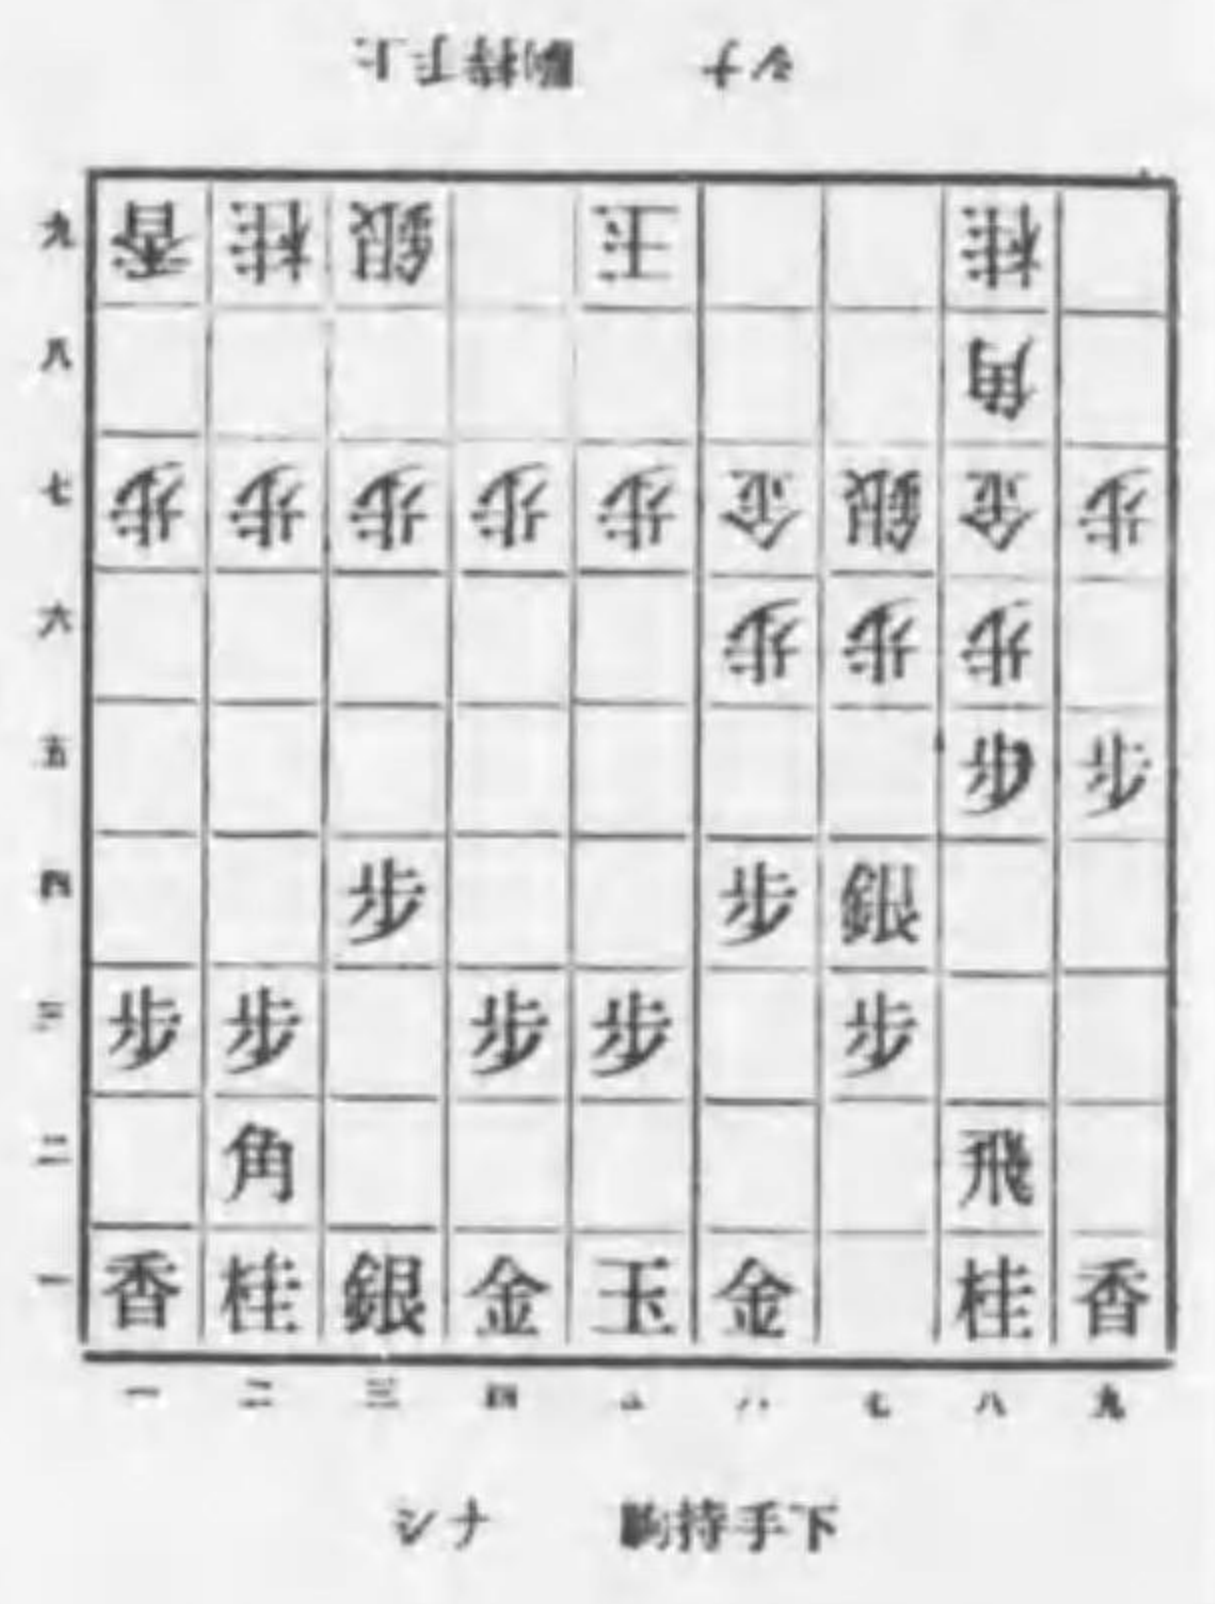 上手持駒 ナシ
九 香 桂 銀 玉 桂
八 角
七 歩 歩 歩 歩 歩 金 銀 金 歩
六 歩 歩 歩
五 歩 歩
四 歩 歩 銀
三 歩 歩 歩 歩 歩
二 角 飛
一 香 桂 銀 金 玉 金 桂 香
一 二 三 四 七 八 九
下手持駒 ナシ